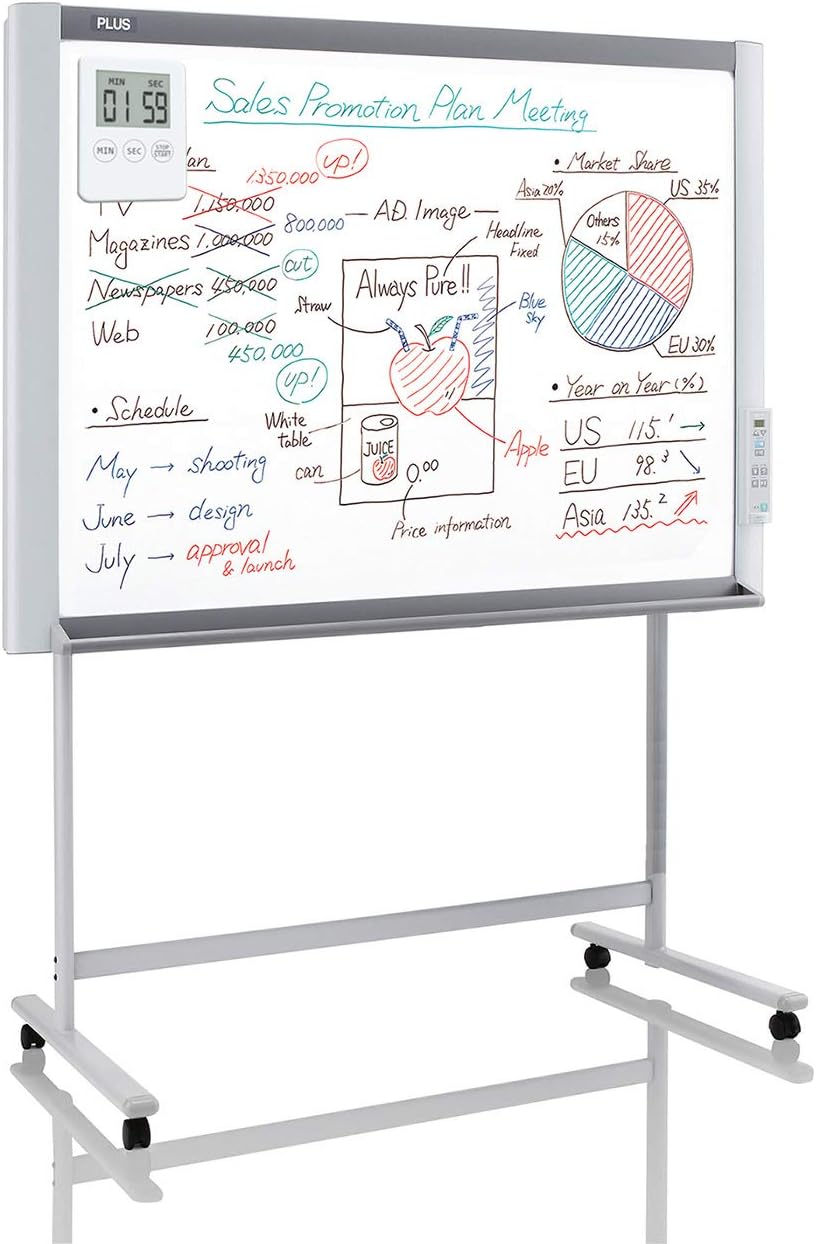 PLUS
MIN SEC
01 59
MIN SEC STOP START
Sales Promotion Plan Meeting
1350,000 up!
1,150,000
Magazines 1,000,000 800,000
Newspapers 450,000 cut
Web 100,000
450,000
up!
• Schedule
May → shooting
June → design
July → approval
& launch
— A.D. Image —
Headline
Fixed
Always Pure!!
Straw
Blue
Sky
White
table
can
JUICE
Apple
0.00
Price information
• Market Share
Asia 20%
US 35%
Others
15%
EU 30%
• Year on Year (%)
US 115.1 →
EU 98.3 ↘
Asia 135.2 ↗